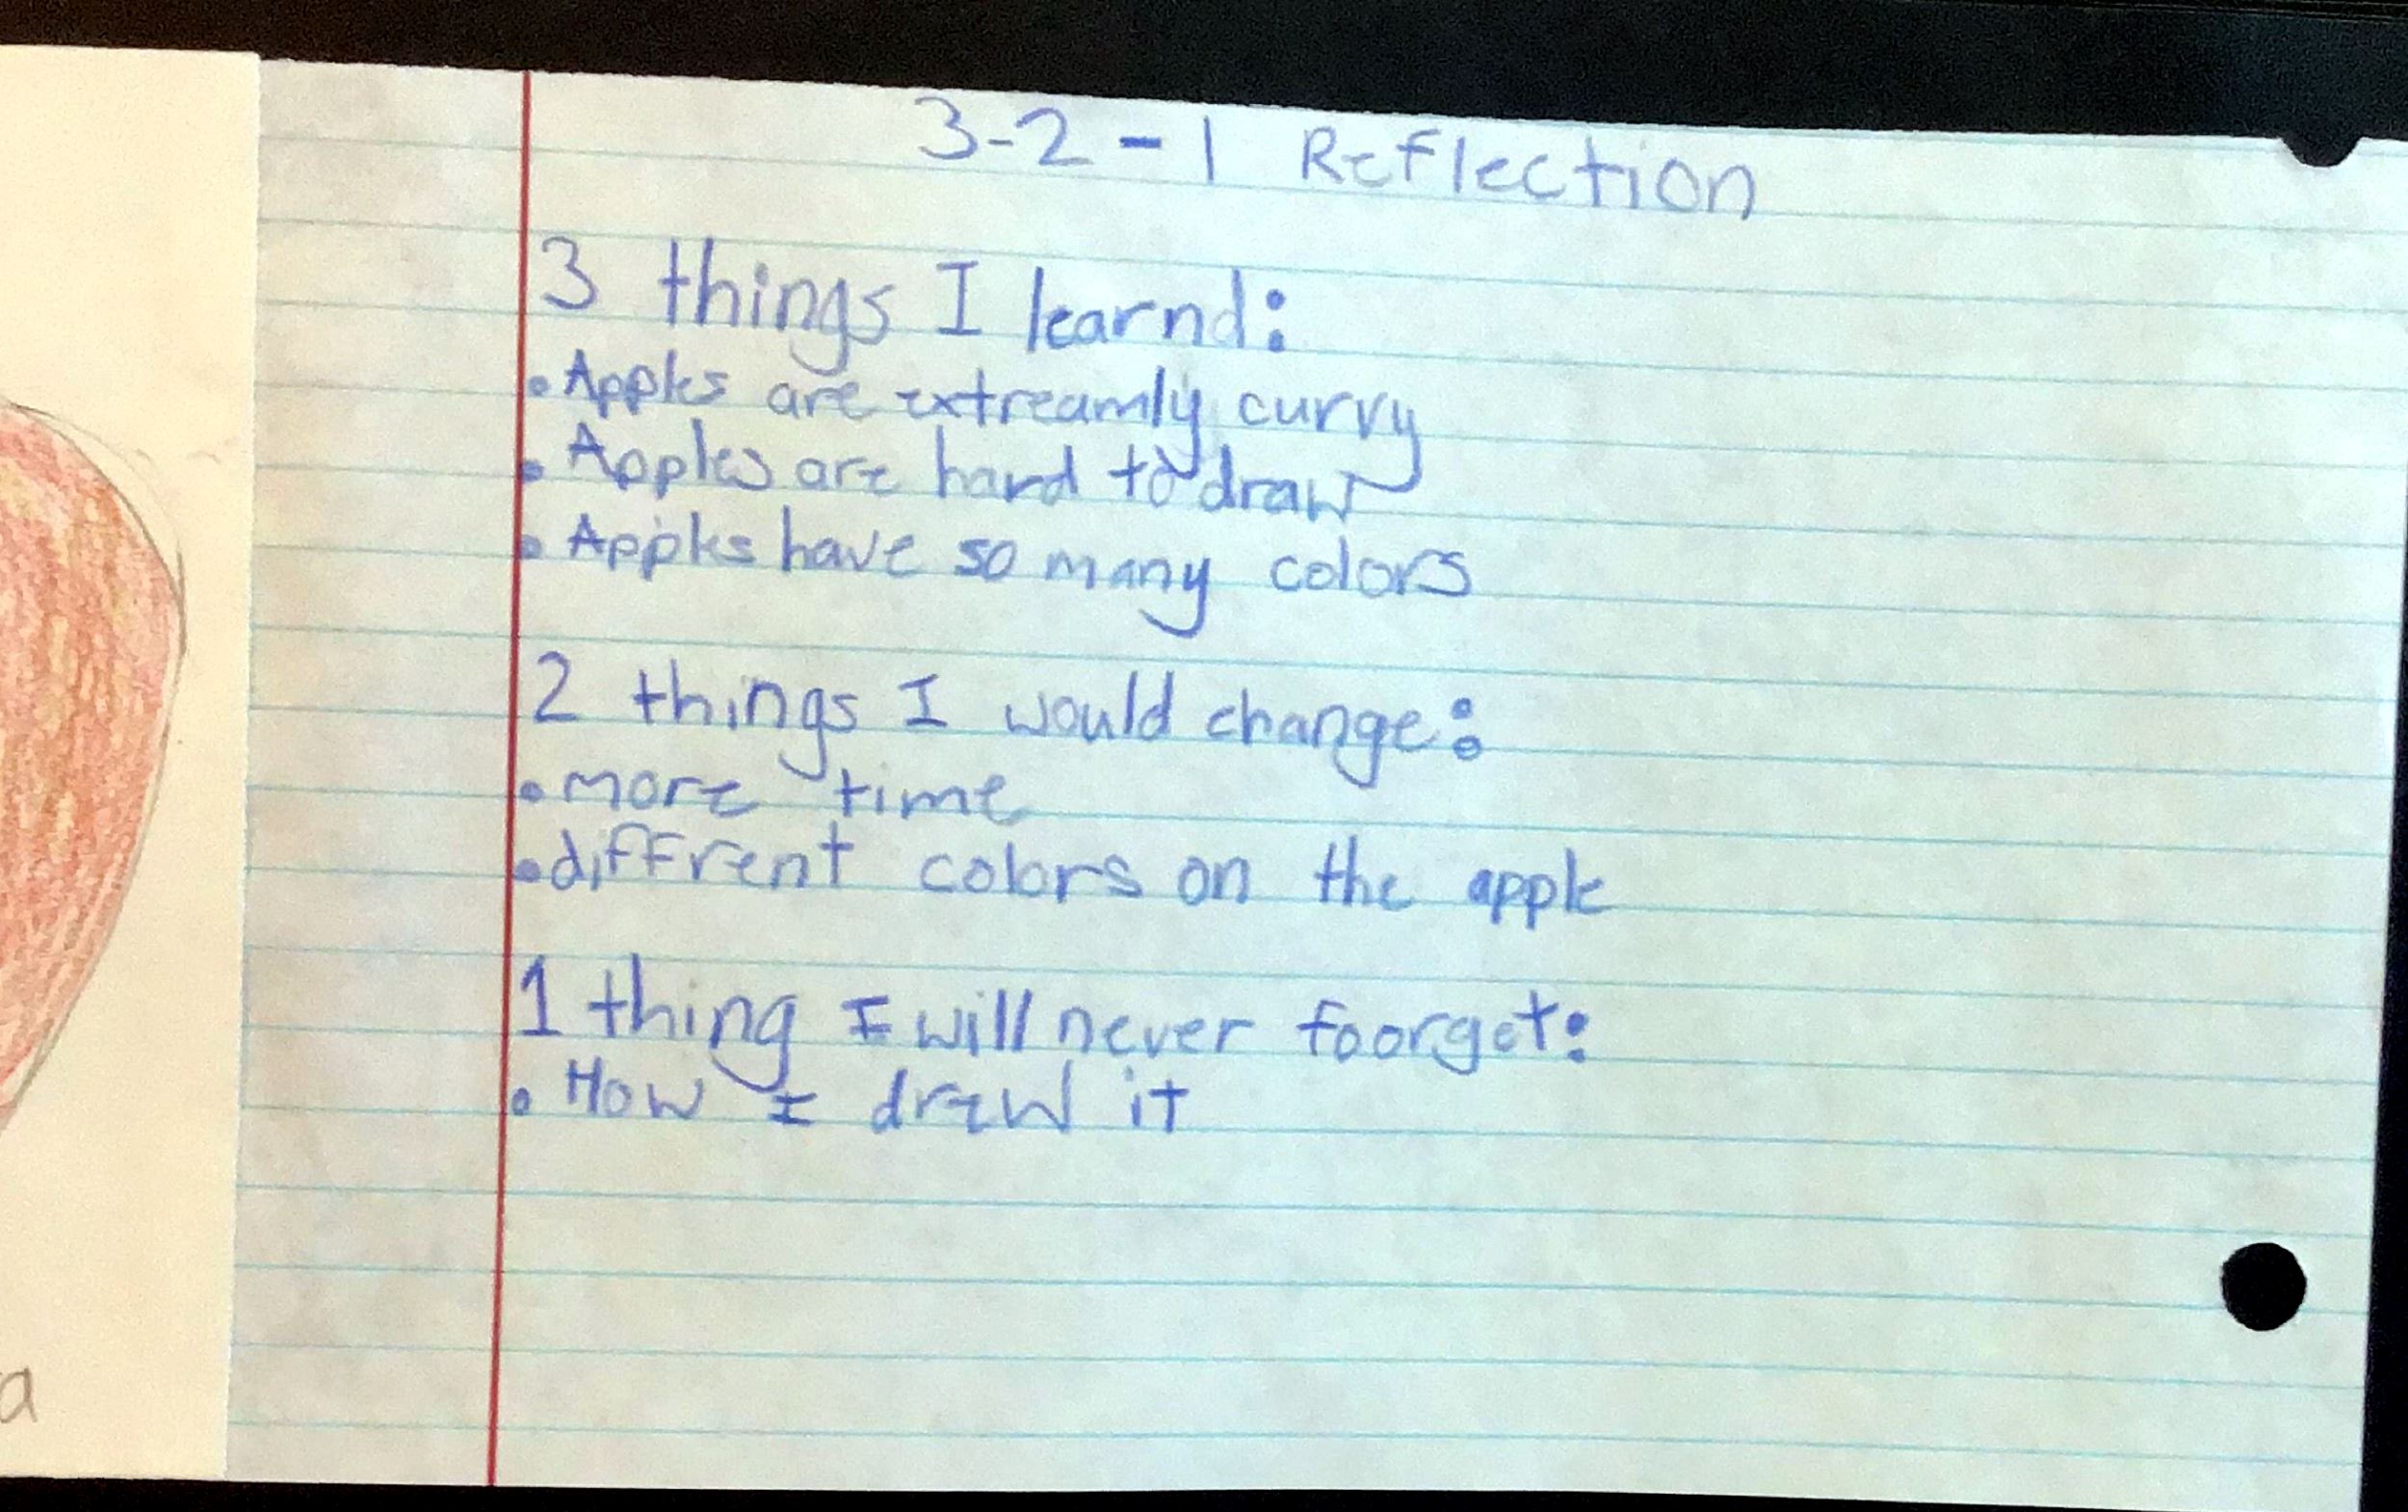 3-2-1 Reflection
3 things I learnd:
• Apples are extreamly curvy
• Apples are hard to draw
• Apples have so many colors
2 things I would change:
• more time
• diffrent colors on the apple
1 thing I will never foorget:
• How I drew it
a